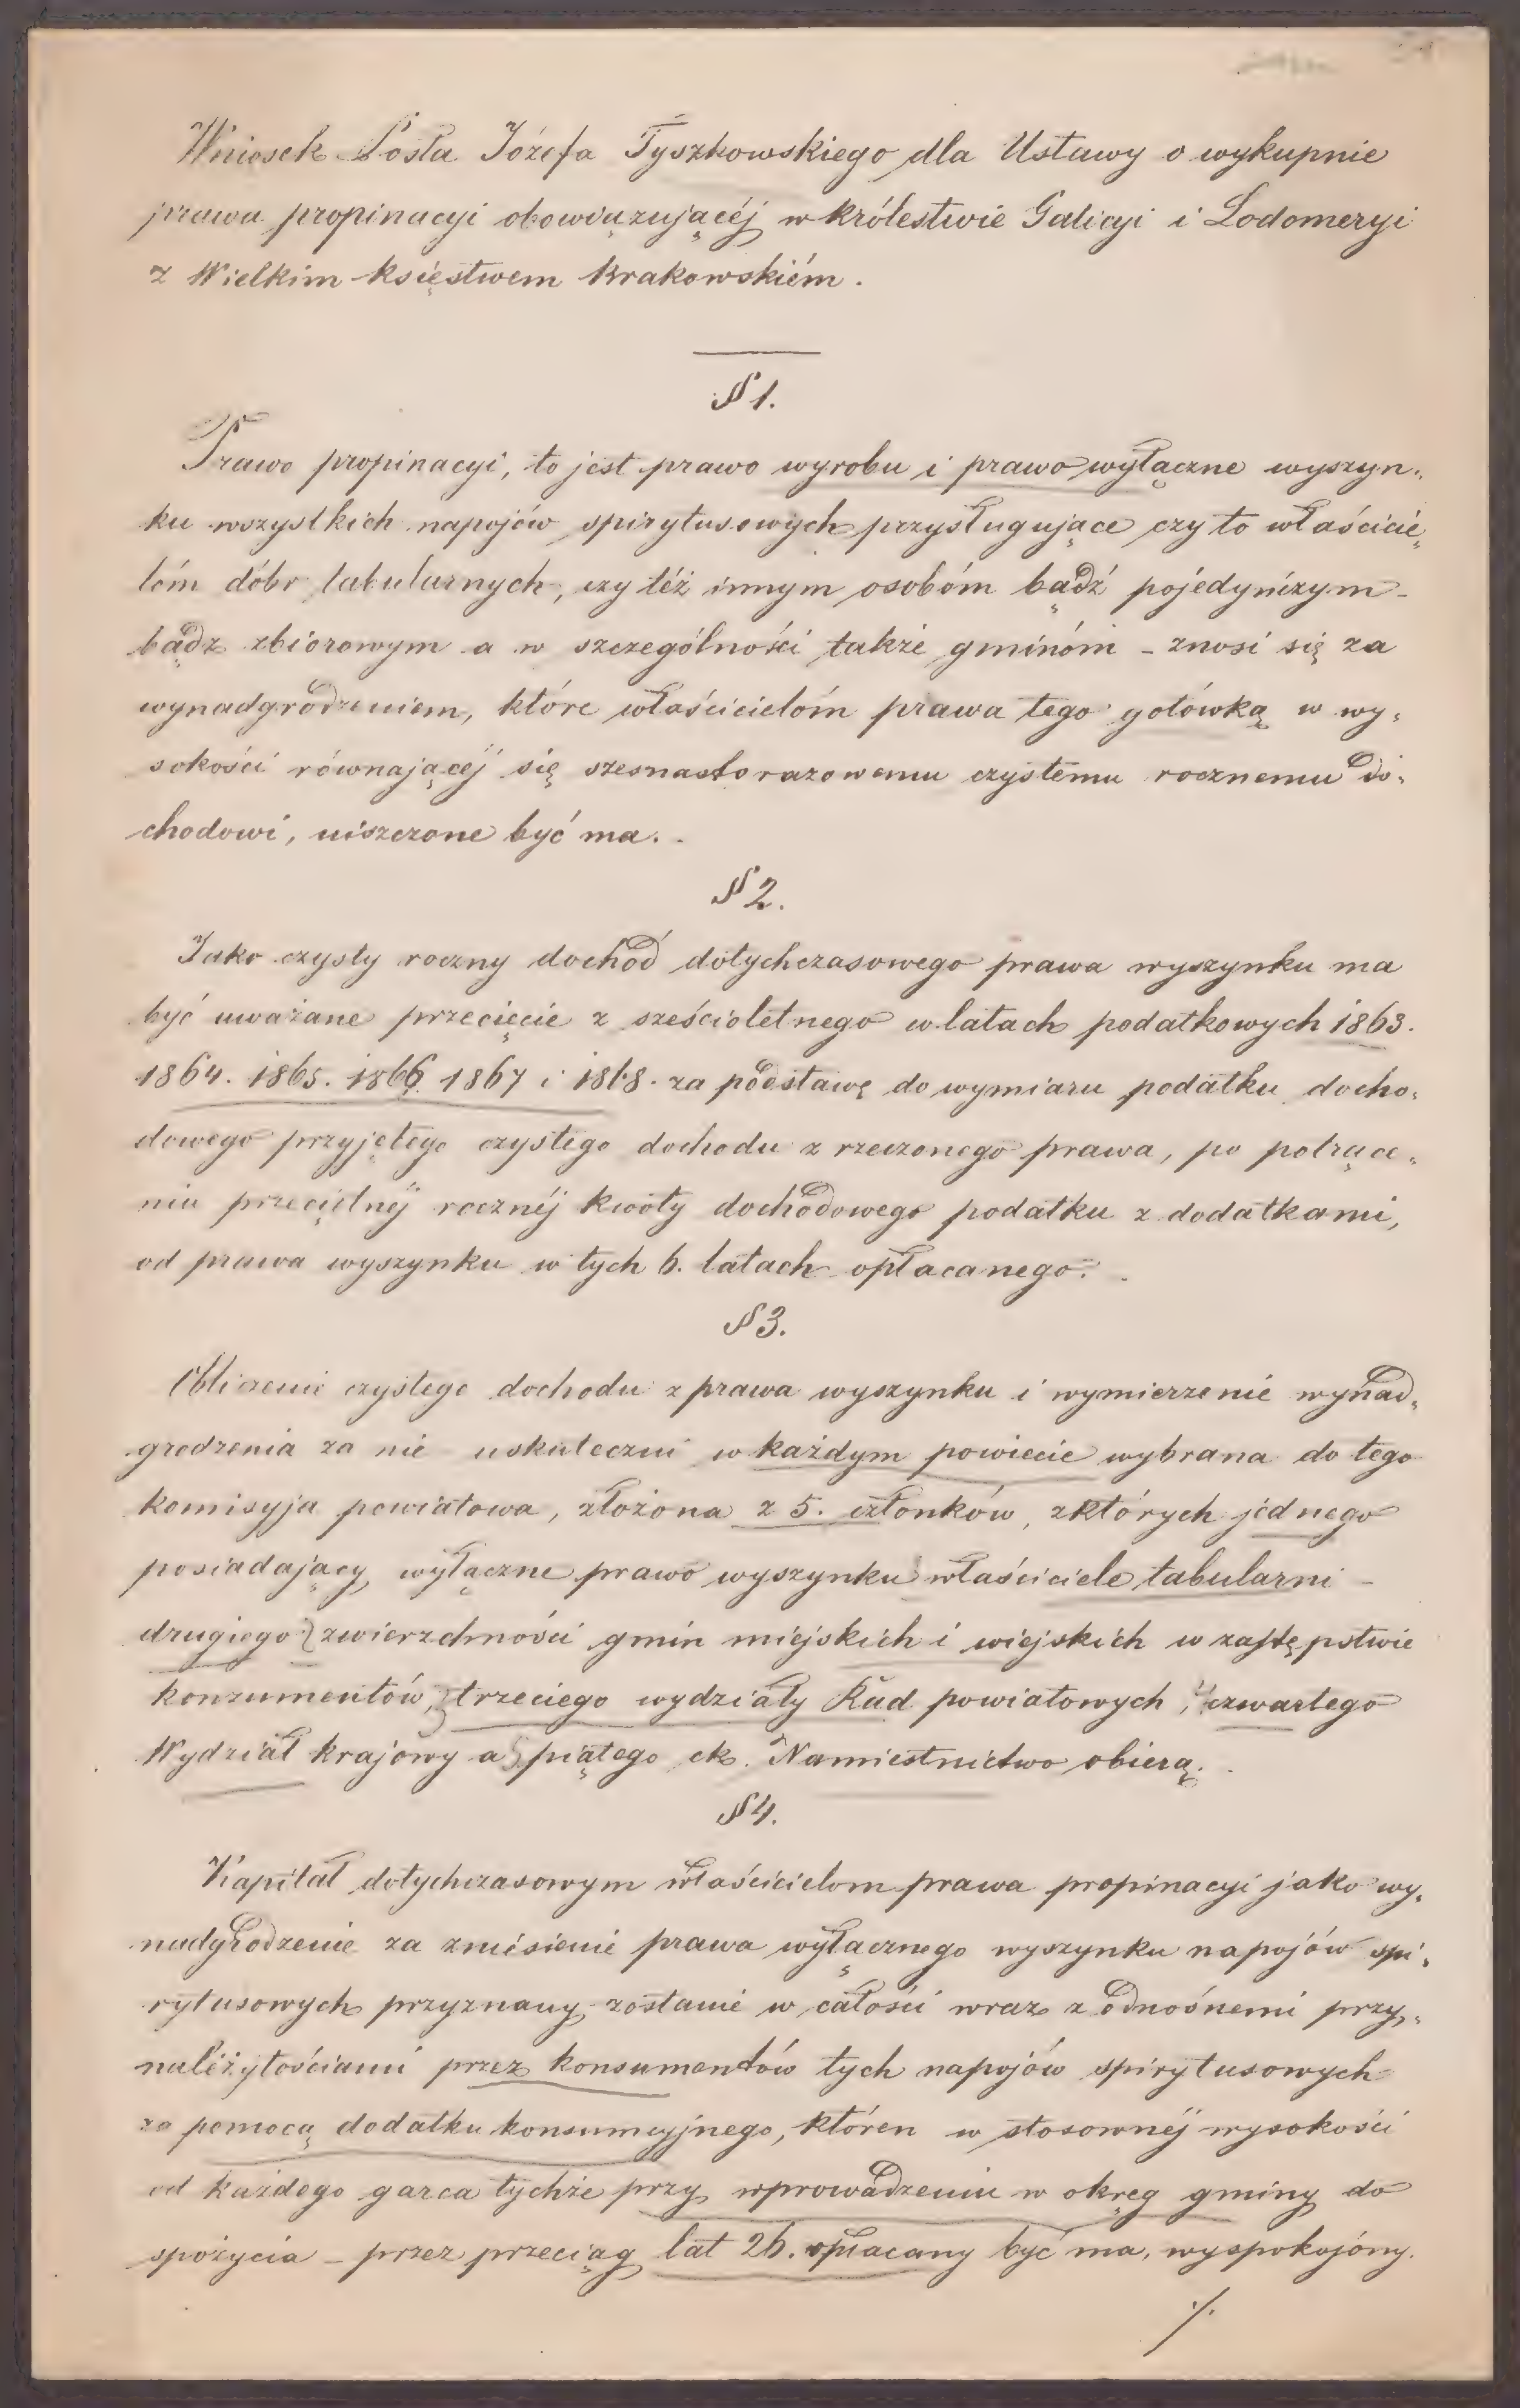 Wniosek Posła Józefa Tyszkowskiego dla Ustawy o wykupnie
prawa propinacyi obowiązującéj w królestwie Galicyi i Lodomeryi
z Wielkim księstwem Krakowskiém.
§ 1.
Prawo propinacyi, to jest prawo wyrobu i prawo wyłączne wyszyn-
ku wszystkich napojów spirytusowych przysługujące czy to właścicie-
lóm dóbr tabularnych, czy téż innym osobóm bądź pojedyńczym -
bądz zbiorowym a w szczególności także gminóm - znosi się za
wynadgrodzeniem, które właścicielóm prawa tego gotówką w wy-
sokości równającéj się szesnastorazowemu czystemu rocznemu do-
chodowi, uiszczone być ma. -
§ 2.
Jako czysty roczny dochód dotychczasowego prawa wyszynku ma
być uważane przecięcie z sześcioletnego w latach podatkowych 1863.
1864. 1865. 1866 1867 i 1868. za podstawę do wymiaru podatku docho-
dowego przyjętego czystego dochodu z rzeczonego prawa, po potrące-
niu przeciętnéj rocznéj kwoty dochodowego podatku z dodatkami,
od prawa wyszynku w tych 6. latach opłacanego. -
§ 3.
Obliczenie czystego dochodu z prawa wyszynku i wymierzenie wynad-
grodzenia za nie uskuteczni w każdym powiecie wybrana do tego
komisyja powiatowa, złożona z 5. członków, z których jednego
posiadający wyłączne prawo wyszynku właściciele tabularni -
drugiego zwierzchności gmin miejskich i wiejskich w zastępstwie
konzumentów, trzeciego wydziały Rad powiatowych, czwartego
Wydział krajowy a piątego ck. Namiestnictwo obierą. -
§ 4.
Kapitał dotychczasowym właścicielom prawa propinacyi jako wy-
nadgrodzenie za zniesienie prawa wyłącznego wyszynku napojów spi-
rytusowych przyznany zostanie w całości wraz z odnośnemi przy-
należytościami przez konsumentów tych napojów spirytusowych
za pomocą dodatku konsumcyjnego, któren w stosownéj wysokości
od każdego garca tychże przy wprowadzeniu w okręg gminy do
spożycia - przez przeciąg lat 26. opłacany być ma, wyspokojóny.
./.